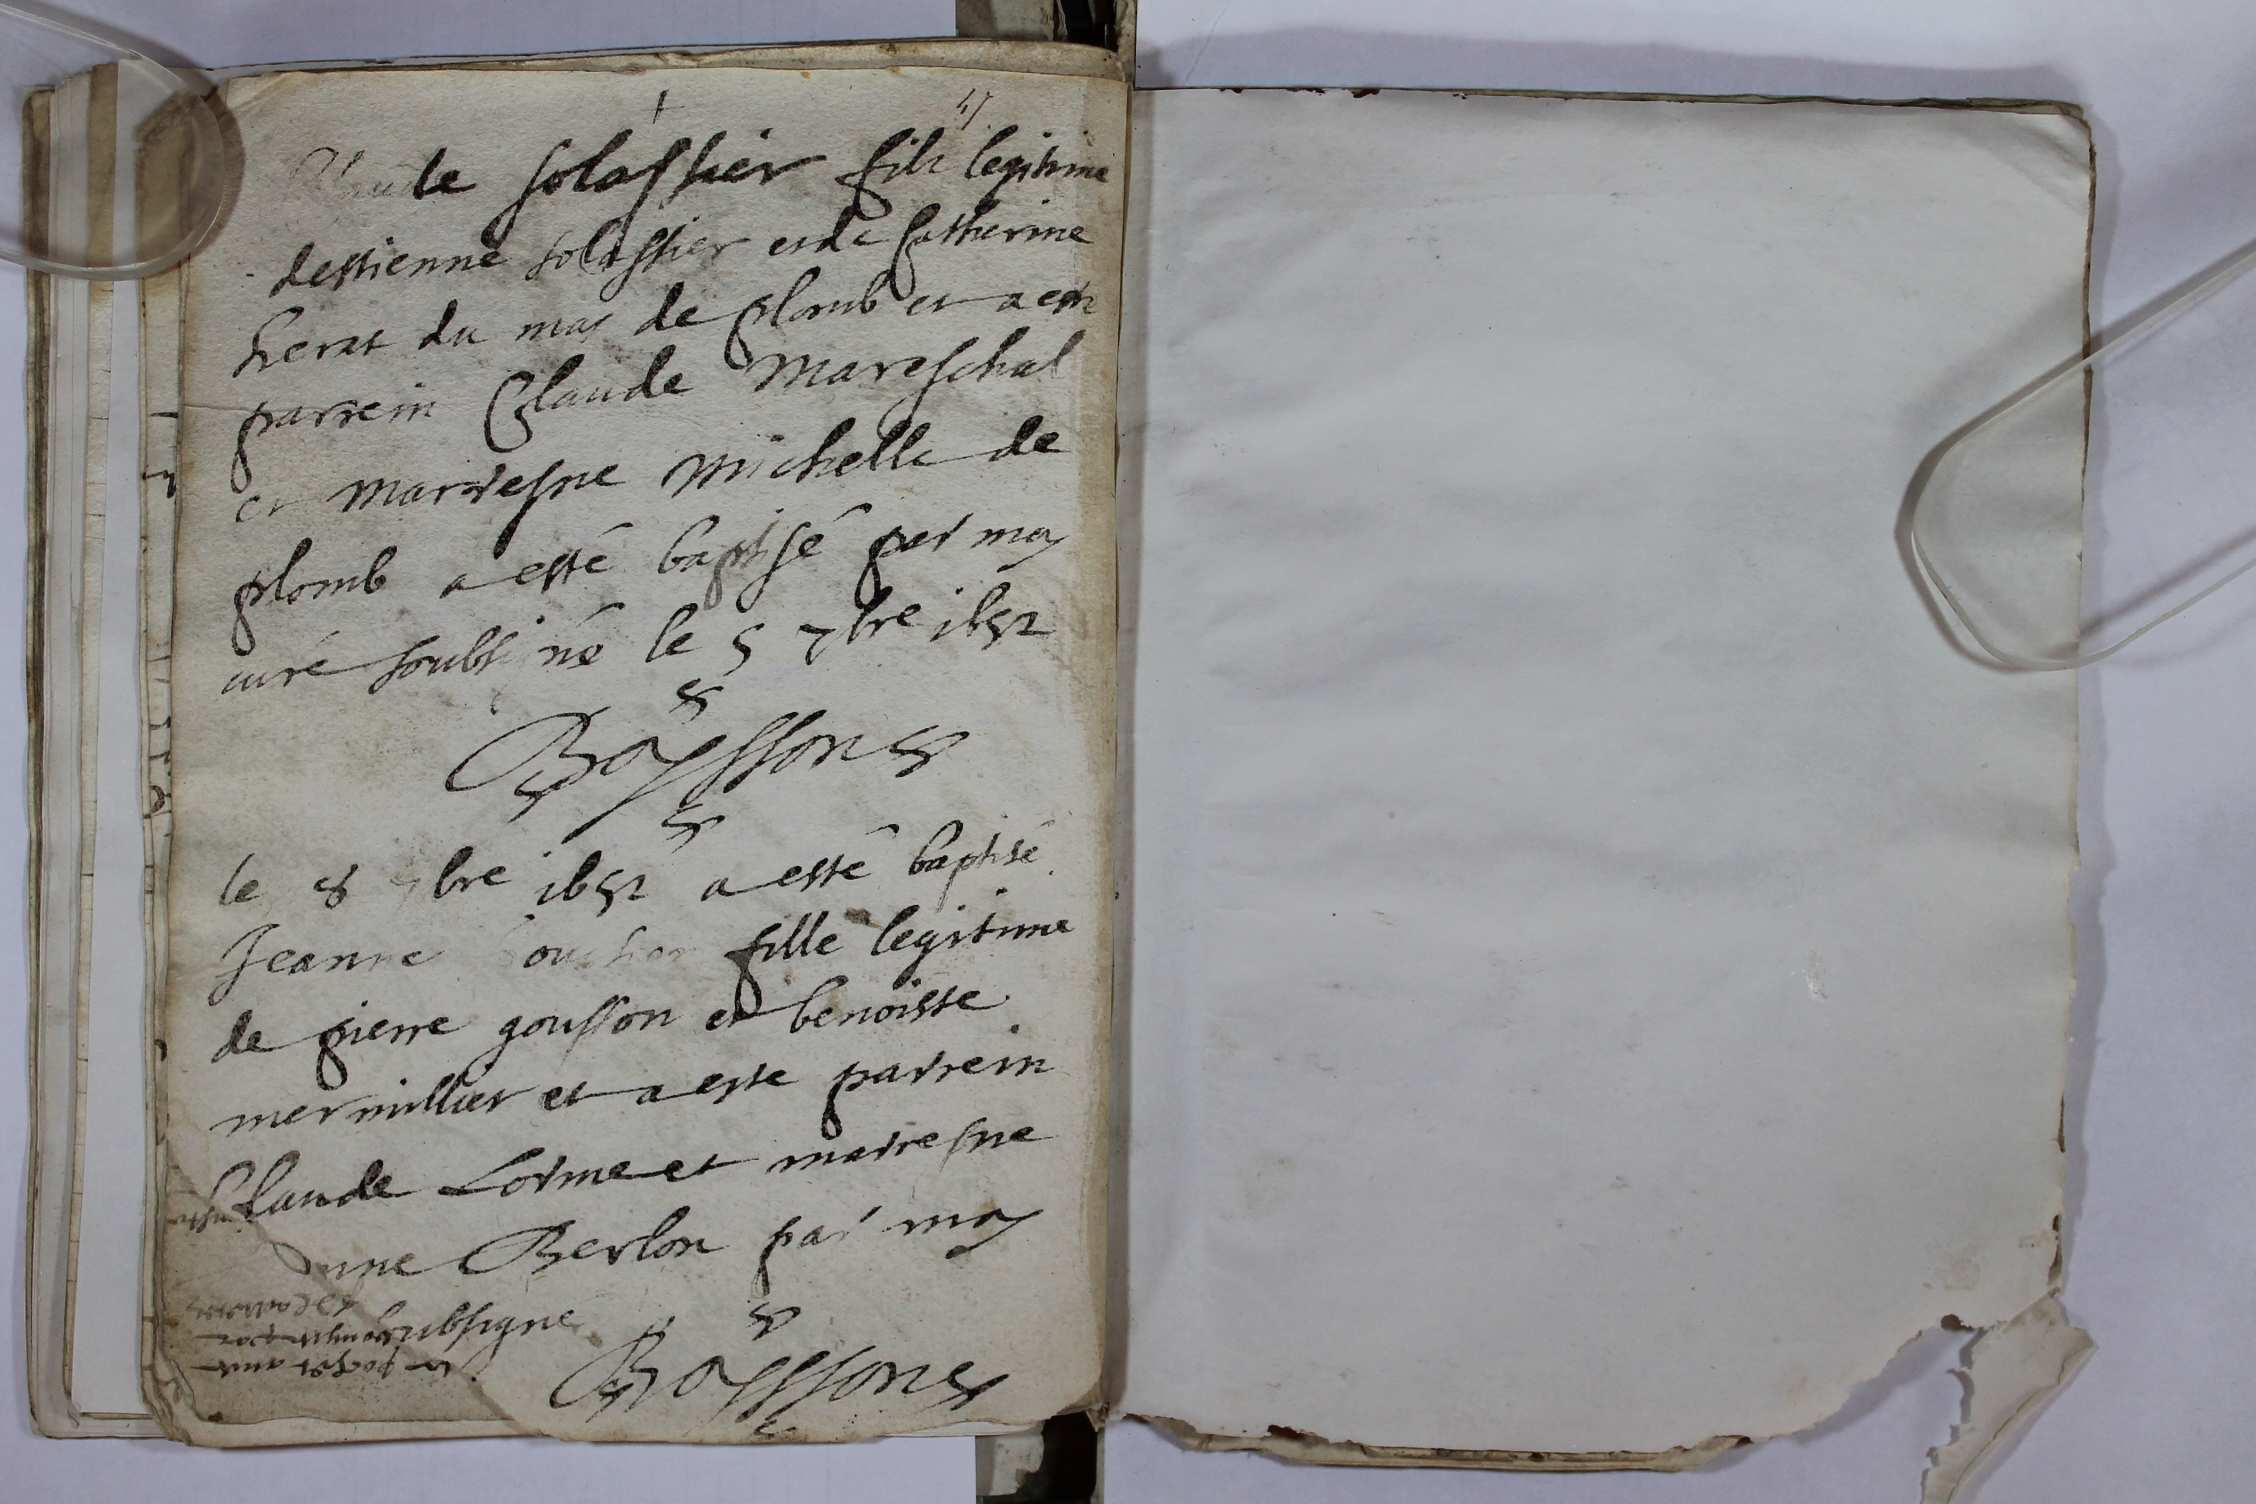 Claude solassier fils legitime
destienne solassier et de Catherine
herat du mas de plomb et a este
parrein Claude Mareschal
et marresne Michelle de
plomb a esté baptisé par moy
curé soubsiné le 5 7bre 1652
Boyssone
le 8 7bre 1652 a esté baptisé
Jeanne fille legitime
de pierre gousson et benoiste
mermillier et a este parrein
Claude Lorme et marresne
Berlon par moy
soubsigne
Boyssone